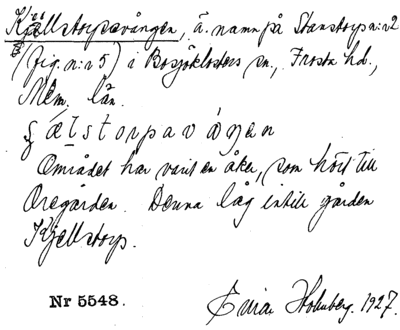 Kjällstorpsvången, ä. namn på Stanstorp n:r 2
(fig. n:r 5) i Bosjöklosters sn., Frosta hd.,
Mlm. län.
Området har varit en åker, som hört till
Öregården. Denna låg intill gården
Kjellstorp.
Nr 5548.
Holmberg. 1927.